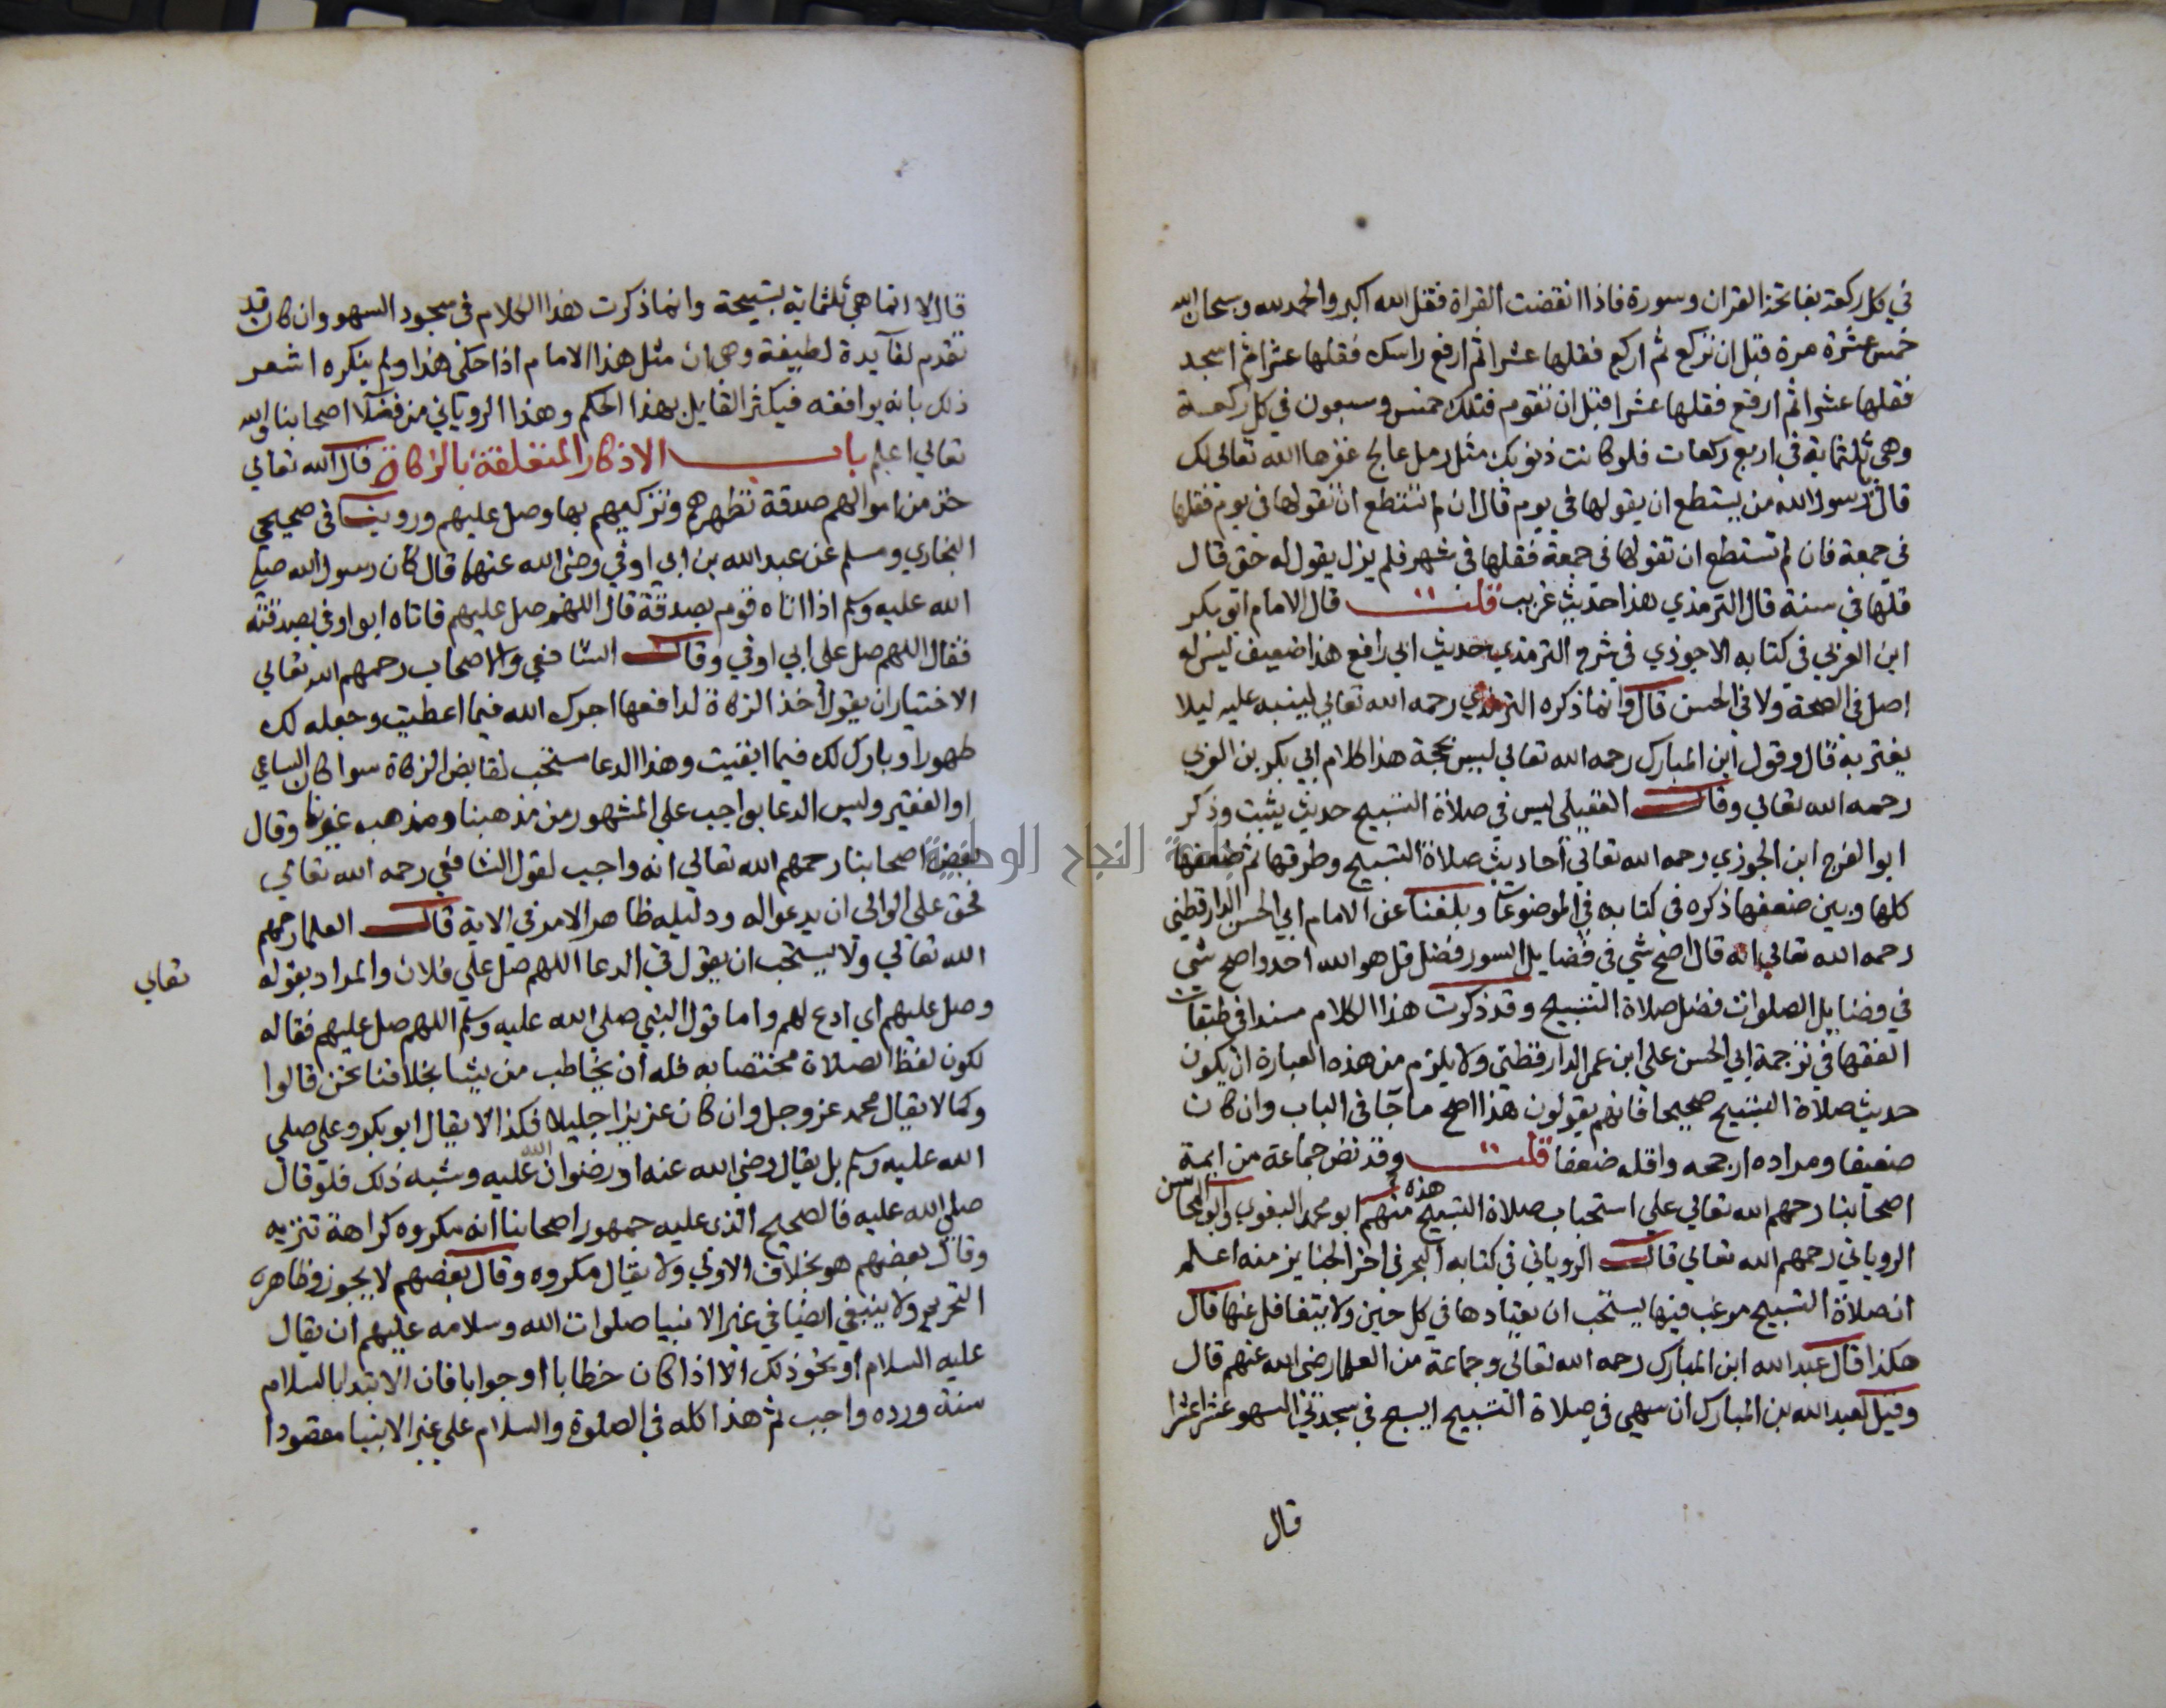 في كل ركعة بفاتحة القران وسورة فاذا انقضت القراة فقل الله اكبر والحمد لله وسبحان الله
خمس عشرة مرة قبل ان تركع ثم اركع فقلها عشرا ثم ارفع راسك فقلها عشرا ثم اسجد
فقلها عشرا ثم ارفع فقلها عشرا قبل ان تقوم فتلك خمس وسبعون في كل ركعة
وهي ثلثماية في اربع ركعات فلو كانت ذنوبك مثل رمل عالج غفرها الله تعالى لك
قال رسول الله من يستطع ان يقولها في يوم قال ان لم تستطع ان تقولها في يوم فقلها
في جمعة فان لم تستطع ان تقولها في جمعة فقلها في شهر فلم يزل يقول له حتى قال
قلها في سنة قال الترمذي هذا حديث غريب قلت قال الامام ابو بكر
ابن العربي في كتابه الاحوذي في شرح الترمذي حديث ابي رافع هذا ضعيف ليس له
اصل في الصحة ولا في الحسن قال وانما ذكره الترمذي رحمه الله تعالي لينبه عليه ليلا
يغتر به قال وقول ابن المبارك رحمه الله تعالي ليس بحجة هذا كلام ابي بكر بن العربي
رحمه الله تعالي وقال العقيلي ليس في صلاة التسبيح حديث يثبت وذكر
ابو الفرج ابن الجوزي رحمه الله تعالي احاديث صلاة التسبيح وطرقها ثم ضعفها
كلها وبين ضعفها ذكره في كتابه في الموضوعات وبلغنا عن الامام ابي الحسن الدارقطني
رحمه الله تعالي انه قال اصح شي في فضايل السور فضل قل هو الله احد واصح شي
في فضايل الصلوات فضل صلاة التسبيح وقد ذكرت هذا الكلام مسندا في طبقات
الفقها في ترجمة ابي الحسن علي ابن عمر الدارقطني ولا يلزم من هذه العبارة ان يكون
حديث صلاة التسبيح صحيحا فانهم يقولون هذا اصح ما جا في الباب وان كان
ضعيفا ومراده ارجحه واقله ضعفا قلت وقد نص جماعة من ايمة
اصحابنا رحمهم الله تعالي علي استحباب صلاة التسبيح هذه منهم ابو محمد البغوي وابو المحاسن
الروياني رحمهم الله تعالي قال الروياني في كتابه البحر في اخر الجنايز منه اعلم
ان صلاة التسبيح مرغب فيها يستحب ان يعتادها في كل حين ولا يتغافل عنها قال
هكذا قال عبد الله ابن المبارك رحمه الله تعالي وجماعة من العلما رضي الله عنهم قال
وقيل لعبد الله بن المبارك ان سهي في صلاة التسبيح ايسبح في سجدتي السهو عشرا عشرا
قال
قال لا انما هي ثلثماية تسبيحة وانما ذكرت هذا الكلام في سجود السهو وان كان قد
تقدم لفايدة لطيفة وهي ان مثل هذا الامام اذا حكي هذا ولم ينكره اشعر
ذلك بانه يوافقه فيكثر القايل بهذا الحكم وهذا الروياني من فضلا اصحابنا والله
تعالي اعلم باب الاذكار المتعلقة بالزكاة قال الله تعالي
خذ من اموالهم صدقة تطهرهم وتزكيهم بها وصل عليهم وروينا في صحيحي
البخاري ومسلم عن عبد الله بن ابي اوفي رضي الله عنهما قال كان رسول الله صلي
الله عليه وسلم اذا اتاه قوم بصدقة قال اللهم صل عليهم فاتاه ابو اوفي بصدقته
فقال اللهم صل علي ابي اوفي وقال الشافعي والاصحاب رحمهم الله تعالي
الاختيار ان يقول اخذ الزكاة لدافعها اجرك الله فيما اعطيت وجعله لك
طهورا وبارك لك فيما ابقيت وهذا الدعا مستحب لقابض الزكاة سوا كان الساعي
او الفقير وليس الدعا بواجب علي المشهور من مذهبنا ومذهب غيرنا وقال
بعض اصحابنا رحمهم الله تعالي انه واجب لقول الشافعي رحمه الله تعالي
فحق علي الوالي ان يدعوا له ودليله ظاهر الامر في الاية قال العلما رحمهم
الله تعالي ولا يستحب ان يقول في الدعا اللهم صل علي فلان والمراد بقوله
تعالي
وصل عليهم اي ادع لهم واما قول النبي صلي الله عليه وسلم اللهم صل عليهم فقاله
لكون لفظ الصلاة مختصا به فله ان يخاطب من يشا بخلافنا نحن قالوا
وكما لا يقال محمد عز وجل وان كان عزيزا جليلا فكذا لا يقال ابو بكر وعلي صلي
الله عليه وسلم بل يقال رضي الله عنه او رضوان الله عليه وشبه ذلك فلو قال
صلي الله عليه فالصحيح الذي عليه جمهور اصحابنا انه مكروه كراهة تنزيه
وقال بعضهم هو بخلاف الاولي ولا يقال مكروه وقال بعضهم لا يجوز وظاهره
التحريم ولا ينبغي ايضا في غير الانبيا صلوات الله وسلامه عليهم ان يقال
عليه السلام او نحو ذلك الا اذا كان خطابا او جوابا فان الابتدا بالسلام
سنة ورده واجب ثم هذا كله في الصلوة والسلام علي غير الانبيا مقصودا
جامعة النجاح الوطنية